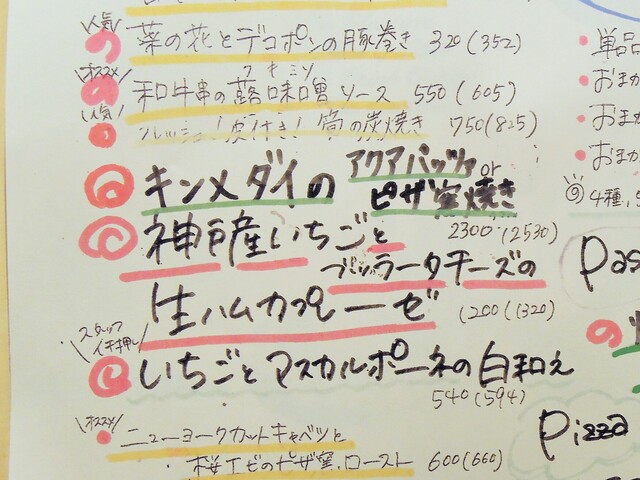 人気
菜の花とデコポンの豚巻き 320(352)
オススメ
フキミソ
和牛串の蕗味噌ソース 550(605)
人気
フレッシュ!皮付き!筍の炭焼き 750(825)
キンメダイの アクアパッツァ or
ピザ窯焼き
2300(2530)
神戸産いちごと
ブッラータチーズの
生ハムカプレーゼ 1200(1320)
スタッフ
イチ押し
いちごとマスカルポーネの白和え
540(594)
オススメ
ニューヨークカットキャベツと
桜エビのピザ窯ロースト 600(660)
単品
おまか
おまか
おまか
4種,
Pas
の
Pizza